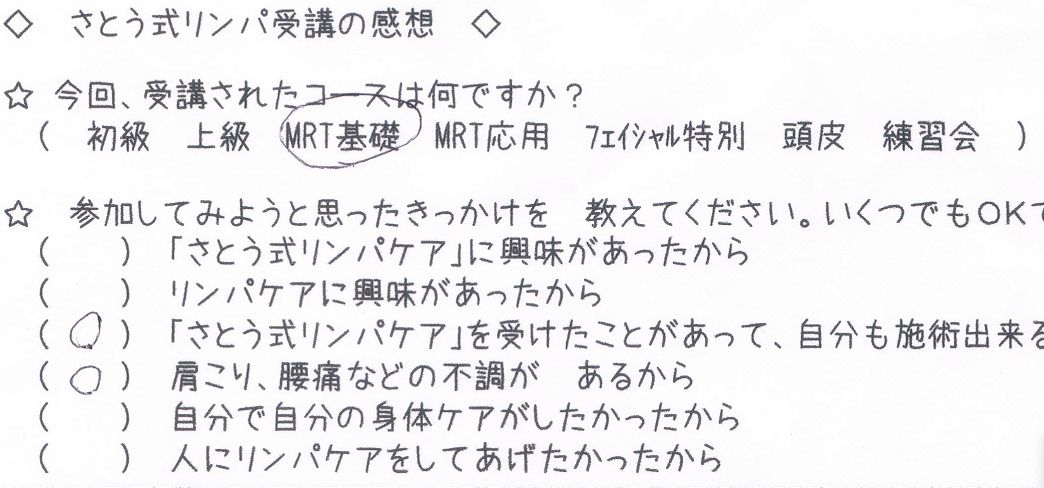 ◇ さとう式リンパ受講の感想 ◇
☆ 今回、受講されたコースは何ですか？
( 初級 上級 MRT基礎 MRT応用 フェイシャル特別 頭皮 練習会 )
☆ 参加してみようと思ったきっかけを 教えてください。いくつでもOKで
( ) 「さとう式リンパケア」に興味があったから
( ) リンパケアに興味があったから
( ○ ) 「さとう式リンパケア」を受けたことがあって、自分も施術出来る
( ○ ) 肩こり、腰痛などの不調が あるから
( ) 自分で自分の身体ケアがしたかったから
( ) 人にリンパケアをしてあげたかったから